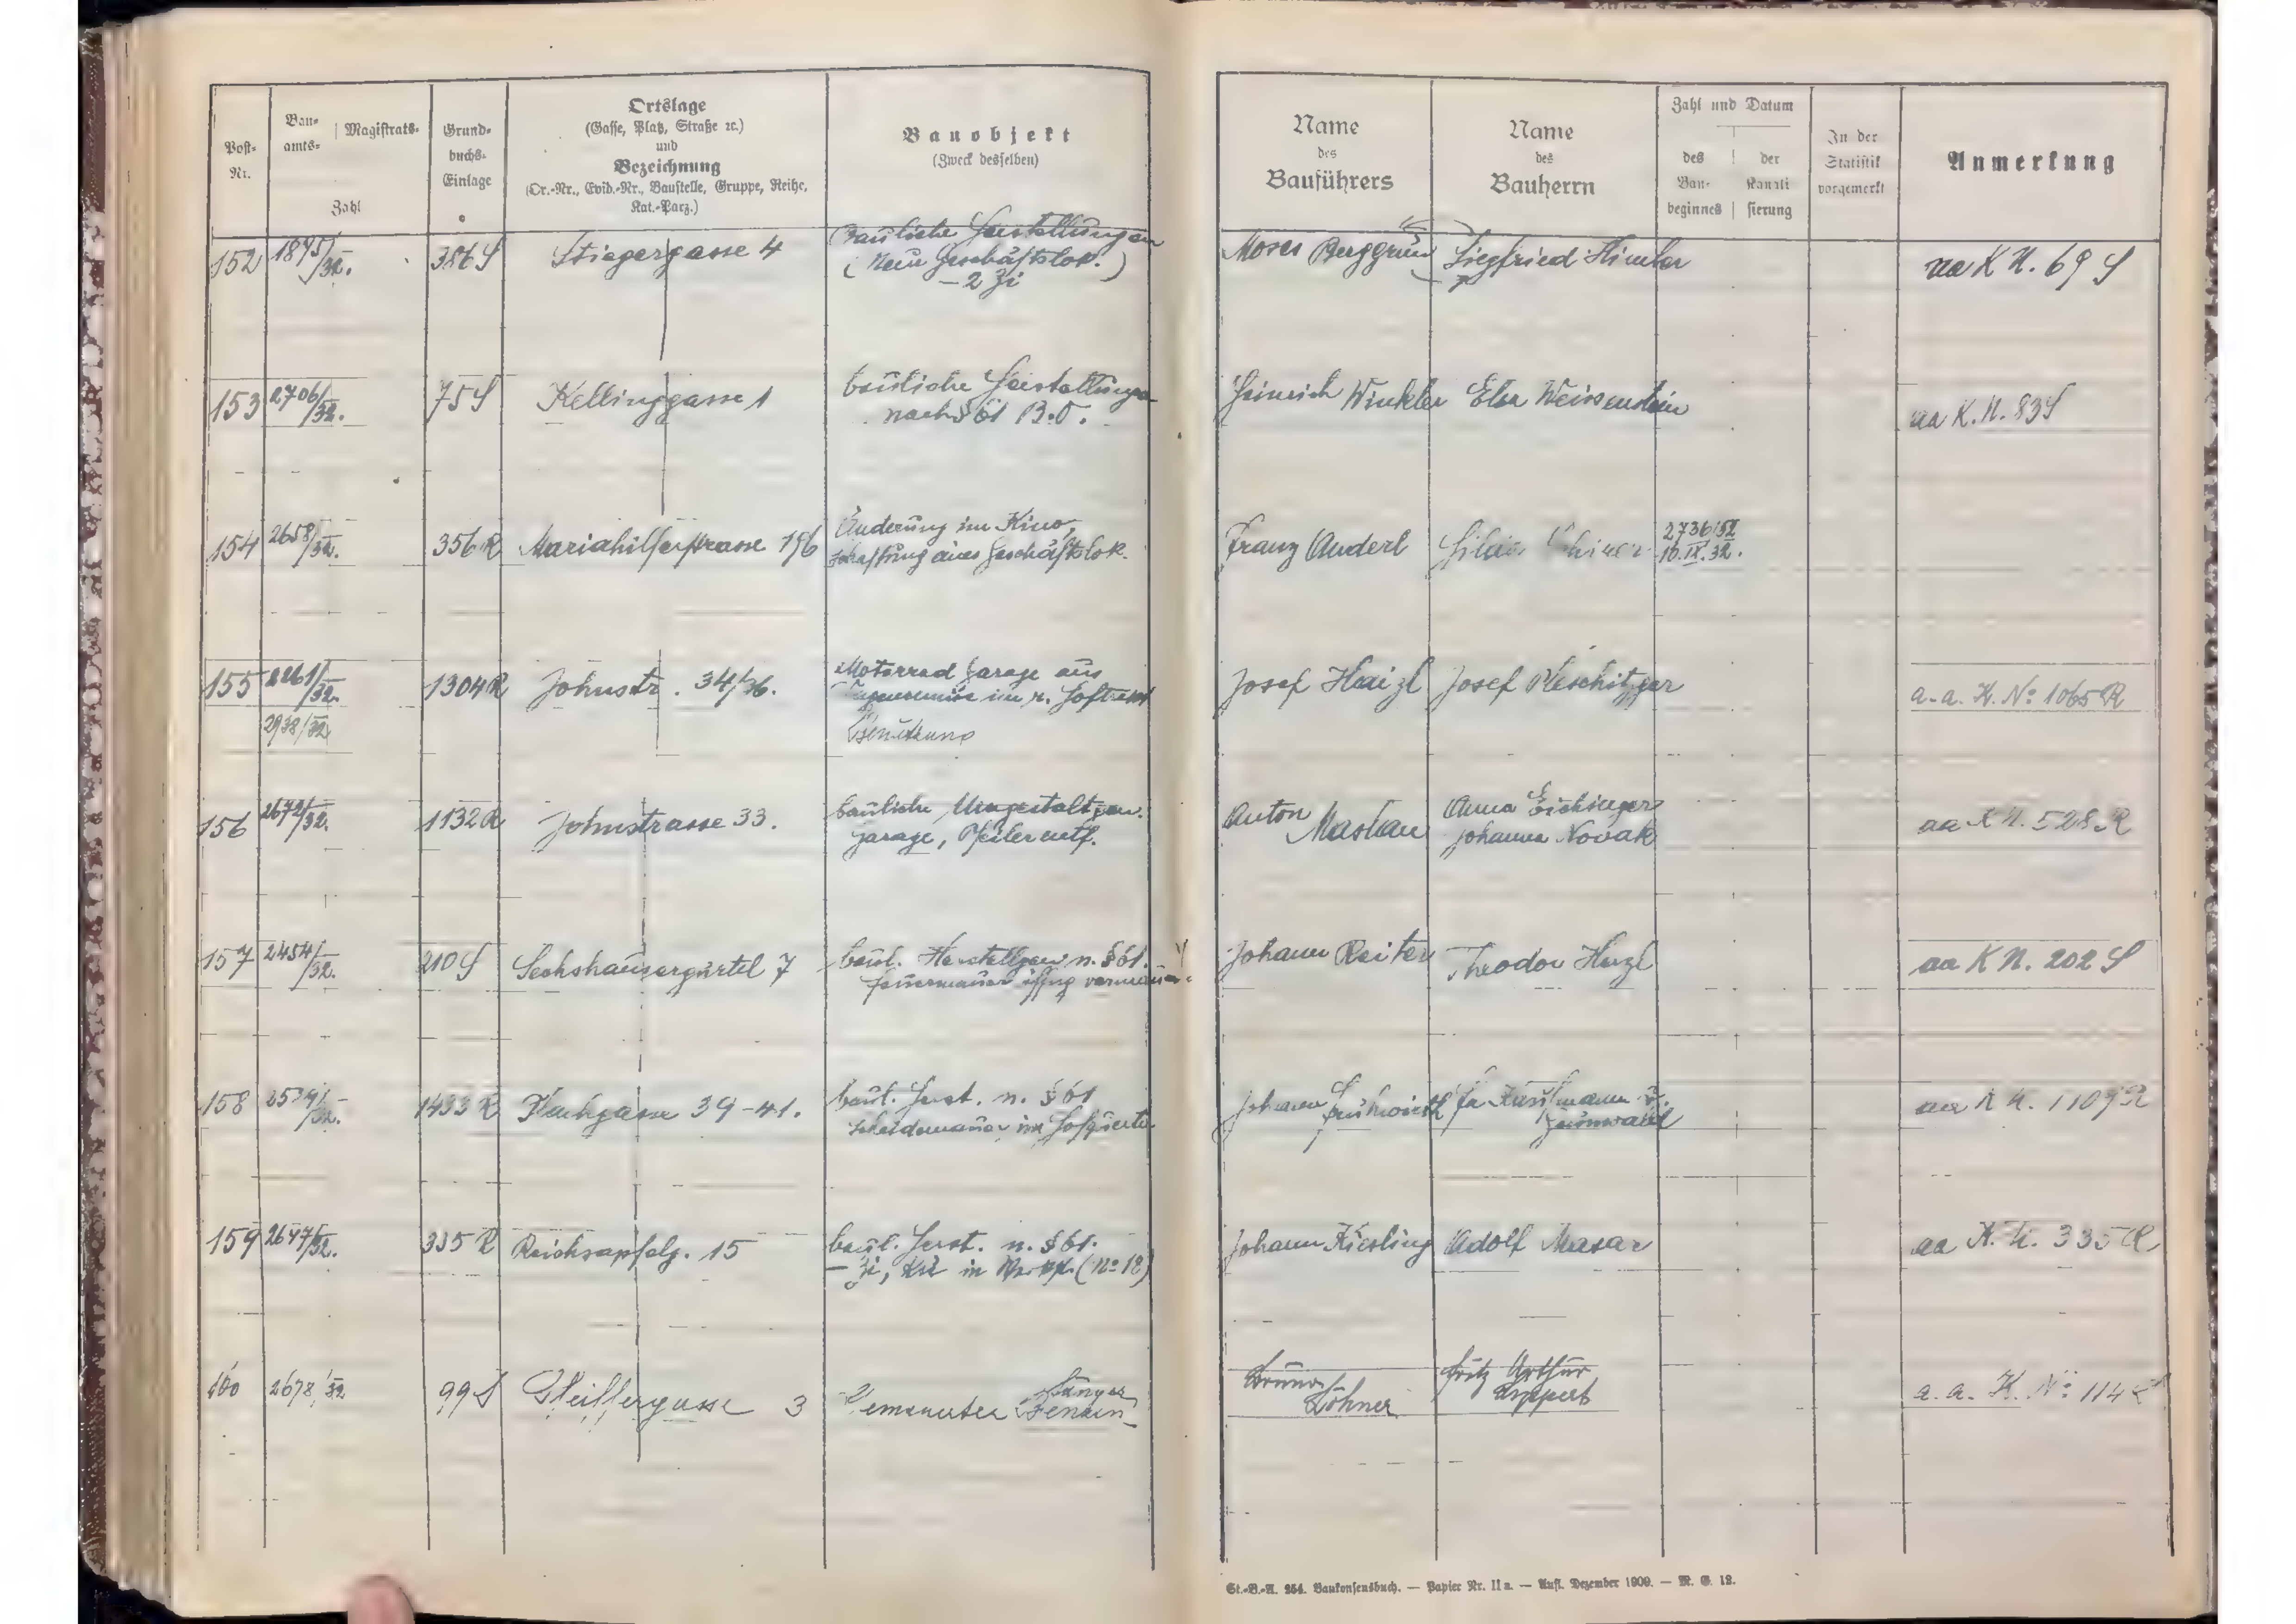 Post-
Nr.
Bau-
amts-
Magistrats-
Zahl
Grund-
buchs-
Einlage
Ortslage
(Gasse, Platz, Straße ꝛc.)
und
Bezeichnung
(Or.-Nr., Evid.-Nr., Baustelle, Gruppe, Reihe,
Kat.-Parz.)
Bauobjekt
(Zweck desselben)
Name
des
Bauführers
Name
des
Bauherrn
Zahl und Datum
des
Bau-
beginnes
der
Kanali
sierung
In der
Statistik
vorgemerkt
Anmerkung
152 1875/32. 386 S Stiegergasse 4
bauliche Herstellungen
(Neue Geschäftslok.)
– 2 Zi
Moses Berggrün Siegfried aa K N. 69 S
153 2706/32. 75 S Kellinggasse 1
bauliche Herstellungen
nach § 61 B.O.
Heinrich Winkler Elsa Weissenstein aa K. N. 83 S
154 2658/32. 356 R Mariahilferstrasse 196
Änderung im Kino,
Schaffung eines Geschäftslok.
Franz Anderl
2736/32
10.IX.32.
155 2261/32. 1304 R Johnstr. 34/36.
2938/32
Motorrad Garage aus
im r. Hoftrakt
Benützung
Josef Haizl Josef Pleschitzger a. a. K. No 1065 R
156 2672/32. 1132 R Johnstrasse 33.
bauliche Umgestaltgen.
Garage, Pfeiler entf.
Anton
Anna Eichinger
Johanna Novak
aa K N. 528 R
157 2454/32. 210 S Sechshausergürtel 7
baul. Herstellgen n. § 61.
Feuermauer öffng vermauer.
Johann Reiter Theodor aa K N. 202 S
158 32. 1433 R 39-41.
baul. Herst. n. § 61
Scheidemauer im
Johann Frühwirth
Fa Kaufmann u.
Grünwald
aa K N. 1109 R
159 2647/32. 335 R Reichsapfelg. 15
baul. Herst. n. § 61.
– Zi, in (No 18)
Johann Kiesling Adolf Masar aa K. N. 335 R
160 2678/32 99 S 3
Bruno
Löhner
Fritz Arthur
Lippert
a. a. K. No 114 S
St.-B.-A. 254. Baukonsensbuch. — Papier Nr. II a. — Aufl. Dezember 1909. — M. G. 12.